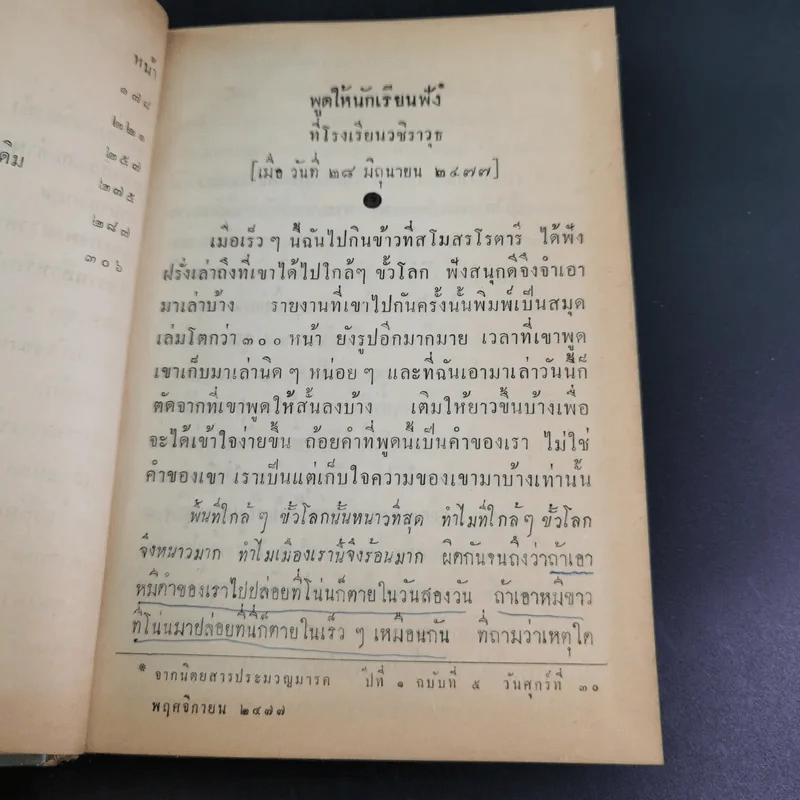 หน้า
๑๗๘
๒๒๑
๒๕๗
ดิม
๒๗๕
๒๘๗
๓๐๖
พูดให้นักเรียนฟัง*
ที่โรงเรียนวชิราวุธ
[เมื่อ วันที่ ๒๘ มิถุนายน ๒๔๗๗]
เมื่อเร็ว ๆ นี้ฉันไปกินข้าวที่สโมสรโรตารี่ ได้ฟัง
ฝรั่งเล่าถึงที่เขาได้ไปใกล้ๆ ขั้วโลก ฟังสนุกดีจึงจำเอา
มาเล่าบ้าง รายงานที่เขาไปกันครั้งนั้นพิมพ์เป็นสมุด
เล่มโตกว่า ๓๐๐ หน้า ยังรูปอีกมากมาย เวลาที่เขาพูด
เขาเก็บมาเล่านิด ๆ หน่อย ๆ และที่ฉันเอามาเล่าวันนี้ก็
ตัดจากที่เขาพูดให้สั้นลงบ้าง เติมให้ยาวขึ้นบ้างเพื่อ
จะได้เข้าใจง่ายขึ้น ถ้อยคำที่พูดนี้เป็นคำของเรา ไม่ใช่
คำของเขา เราเป็นแต่เก็บใจความของเขามาบ้างเท่านั้น
พื้นที่ใกล้ ๆ ขั้วโลกนั้นหนาวที่สุด ทำไมที่ใกล้ ๆ ขั้วโลก
จึงหนาวมาก ทำไมเมืองเรานี้จึงร้อนมาก ผิดกันจนถึงว่าถ้าเอา
หมีดำของเราไปปล่อยที่โน่นก็ตายในวันสองวัน ถ้าเอาหมีขาว
ที่โน่นมาปล่อยที่นี่ก็ตายในเร็ว ๆ เหมือนกัน ที่ถามว่าเหตุใด
* จากนิตยสารประมวญมารค ปีที่ ๑ ฉบับที่ ๕ วันศุกร์ที่ ๓๐
พฤศจิกายน ๒๔๗๗